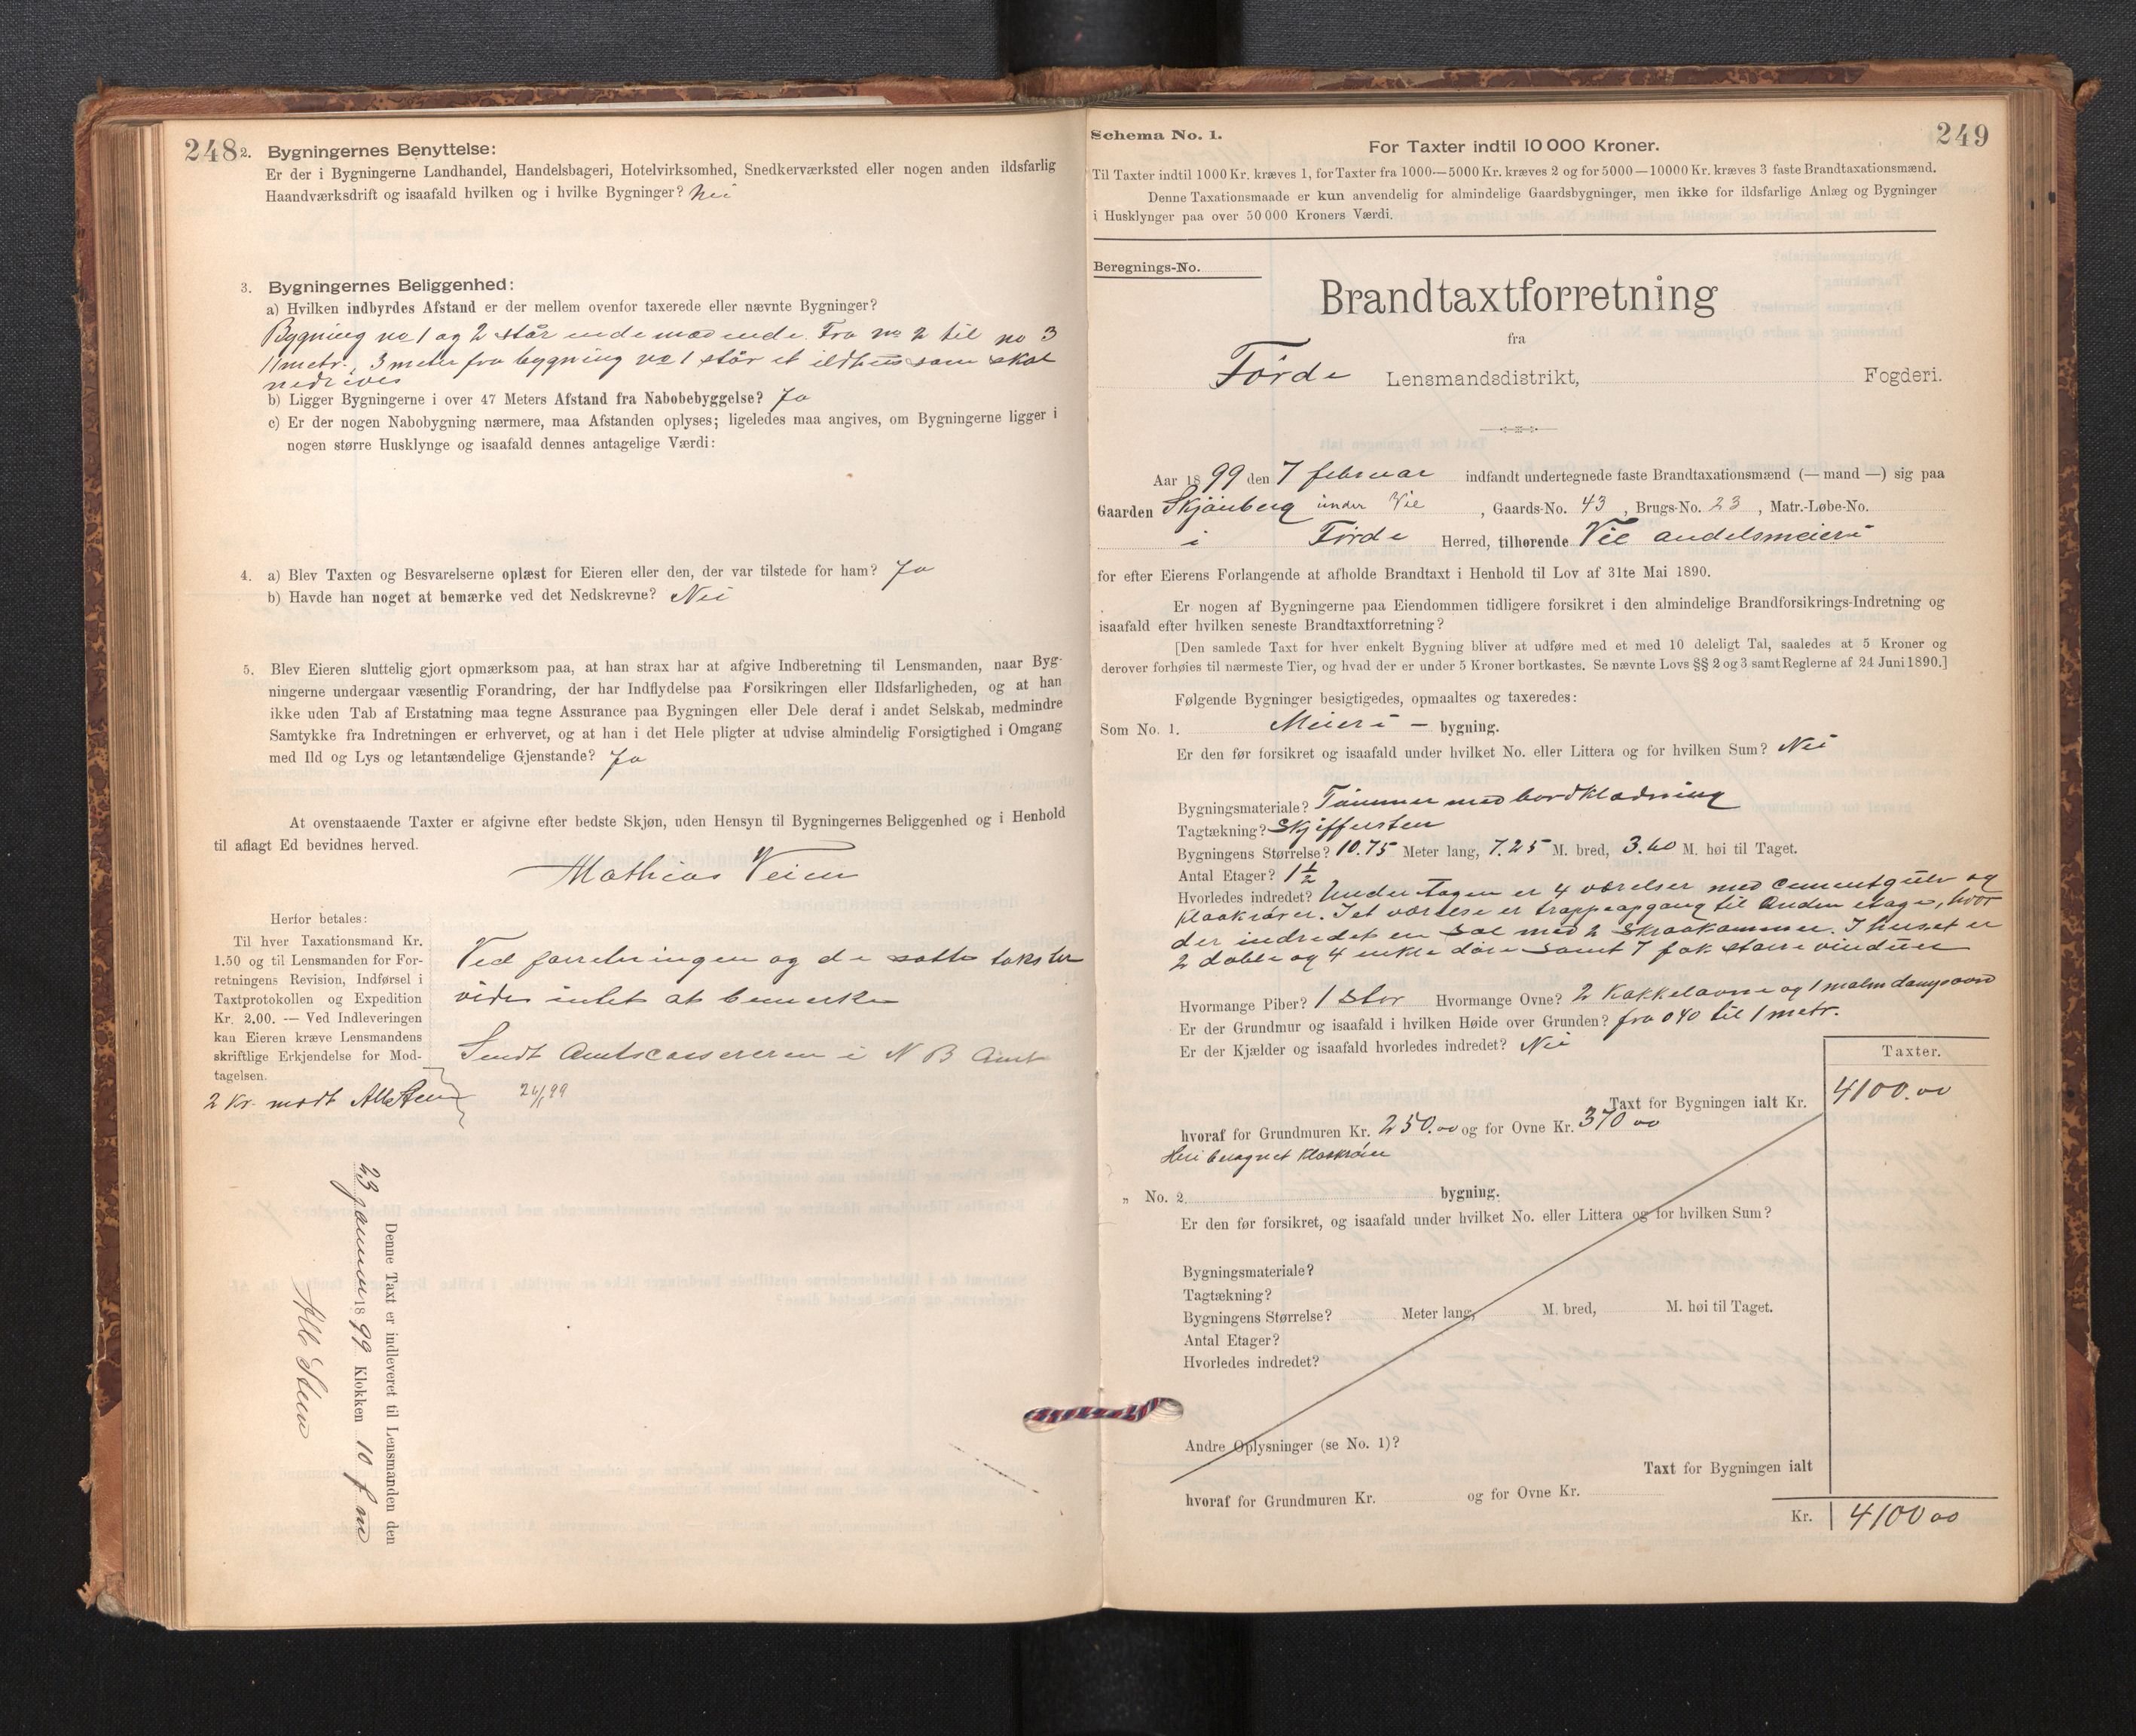 248
2. Bygningernes Benyttelse:
Er der i Bygningerne Landhandel, Handelsbageri, Hotelvirksomhed, Snedkerværksted eller nogen anden ildsfarlig
Haandværksdrift og isaafald hvilken og i hvilke Bygninger? Nei
3. Bygningernes Beliggenhed:
a) Hvilken indbyrdes Afstand er der mellem ovenfor taxerede eller nævnte Bygninger?
Bygning no 1 og 2 står ende mod ende. Fra no 2 til no 3
11 metr., 3 meter fra bygning no 1 står et ildhus som skal
nedrives
b) Ligger Bygningerne i over 47 Meters Afstand fra Nabobebyggelse? Ja
c) Er der nogen Nabobygning nærmere, maa Afstanden oplyses; ligeledes maa angives, om Bygningerne ligger i
nogen større Husklynge og isaafald dennes antagelige Værdi:
4. a) Blev Taxten og Besvarelserne oplæst for Eieren eller den, der var tilstede for ham? Ja
b) Havde han noget at bemærke ved det Nedskrevne? Nei
5. Blev Eieren sluttelig gjort opmærksom paa, at han strax har at afgive Indberetning til Lensmanden, naar Byg-
ningerne undergaar væsentlig Forandring, der har Indflydelse paa Forsikringen eller Ildsfarligheden, og at han
ikke uden Tab af Erstatning maa tegne Assurance paa Bygningen eller Dele deraf i andet Selskab, medmindre
Samtykke fra Indretningen er erhvervet, og at han i det Hele pligter at udvise almindelig Forsigtighed i Omgang
med Ild og Lys og letantændelige Gjenstande? Ja
At ovenstaaende Taxter er afgivne efter bedste Skjøn, uden Hensyn til Bygningernes Beliggenhed og i Henhold
til aflagt Ed bevidnes herved.
Mathias Veien
Herfor betales:
Til hver Taxationsmand Kr.
1.50 og til Lensmanden for For-
retningens Revision, Indførsel i
Taxtprotokollen og Expedition
Kr. 2.00. — Ved Indleveringen
kan Eieren kræve Lensmandens
skriftlige Erkjendelse for Mod-
tagelsen.
2 Kr. modt
Ved forretningen og de satte takster
vides intet at bemerke
Sendt Amtscassereren i N B Amt
Denne Taxt er indleveret til Lensmanden den
23 januar 1899 Klokken 10 f m
249
Schema No. 1.
For Taxter indtil 10 000 Kroner.
Til Taxter indtil 1000 Kr. kræves 1, for Taxter fra 1000—5000 Kr. kræves 2 og for 5000—10000 Kr. kræves 3 faste Brandtaxationsmænd.
Denne Taxationsmaade er kun anvendelig for almindelige Gaardsbygninger, men ikke for ildsfarlige Anlæg og Bygninger
i Husklynger paa over 50 000 Kroners Værdi.
Beregnings-No.
Brandtaxtforretning
fra
Førde Lensmandsdistrikt, Fogderi.
Aar 1899 den 7 februar indfandt undertegnede faste Brandtaxationsmænd (— mand —) sig paa
Gaarden Skjånberg under Vie, Gaards-No. 43, Brugs-No. 23, Matr.-Løbe-No.
i Førde Herred, tilhørende Vie andelsmeieri
for efter Eierens Forlangende at afholde Brandtaxt i Henhold til Lov af 31te Mai 1890.
Er nogen af Bygningerne paa Eiendommen tidligere forsikret i den almindelige Brandforsikrings-Indretning og
isaafald efter hvilken seneste Brandtaxtforretning?
[Den samlede Taxt for hver enkelt Bygning bliver at udføre med et med 10 deleligt Tal, saaledes at 5 Kroner og
derover forhøies til nærmeste Tier, og hvad der er under 5 Kroner bortkastes. Se nævnte Lovs §§ 2 og 3 samt Reglerne af 24 Juni 1890.]
Følgende Bygninger besigtigedes, opmaaltes og taxeredes:
Som No. 1. Meieri – bygning.
Er den før forsikret og isaafald under hvilket No. eller Littera og for hvilken Sum? Nei
Bygningsmateriale? Tømmer med bordklædning
Tagtækning? Skjiffersten
Bygningens Størrelse? 10.75 Meter lang, 7.25 M. bred, 3.60 M. høi til Taget.
Antal Etager? 1 ½
Hvorledes indredet? Under tagen er 4 værelser med cementgulv og
kloakrører. I et værelse er trappeopgang til anden etage, hvor
der indredet en sal med 2 skraakammer. I huset er
2 doble og 4 enkle døre samt 7 fak større vinduer
Hvormange Piber? 1 stor Hvormange Ovne? 2 Kakkelovne og 1 malm dampovn
Er der Grundmur og isaafald i hvilken Høide over Grunden? fra 0 40 til 1 metr.
Er der Kjælder og isaafald hvorledes indredet? Nei
Taxter.
Taxt for Bygningen ialt Kr. 4100.00
hvoraf for Grundmuren Kr. 250.00 og for Ovne Kr. 370 00
Heri beregnet kloakrører
„ No. 2. bygning.
Er den før forsikret, og isaafald under hvilket No. eller Littera og for hvilken Sum?
Bygningsmateriale?
Tagtækning?
Bygningens Størrelse? Meter lang, M. bred, M. høi til Taget.
Antal Etager?
Hvorledes indredet?
Andre Oplysninger (se No. 1)?
Taxt for Bygningen ialt
hvoraf for Grundmuren Kr. og for Ovne Kr.
Kr. 4100 00